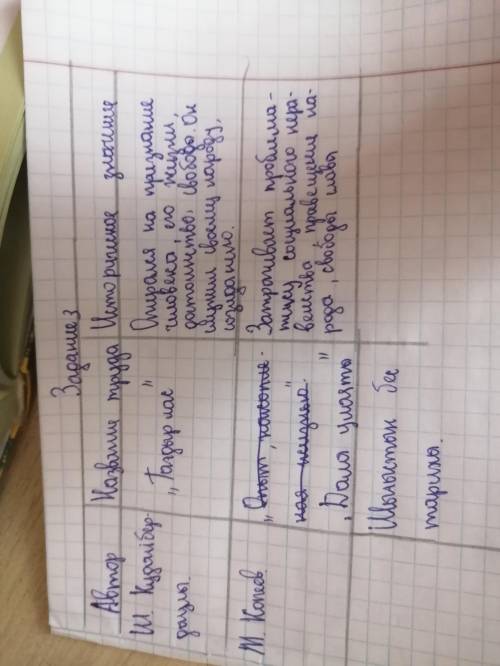 Задание 3
Автор
Название труда
Историческое значение
Ш Кудайбер-
даулы.
„Тағдыр нас"
Опирался на признание
человека, его жизни,
достоинство, свободо. Он
служил своему народу,
М. Копеев
„Опыт, накопле-
ная жизнью."
„Дала уолаяты"
Затрагивает проблема-
тику социального нера-
венства, правещение на-
рода, свободы слова
тарихы.